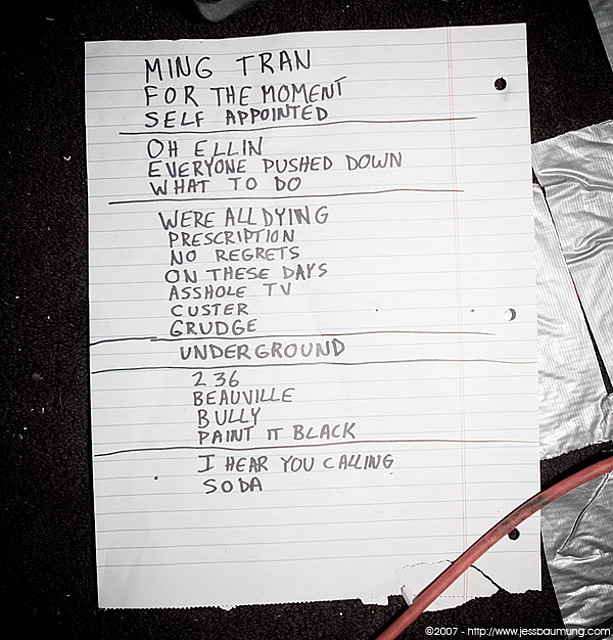 MING TRAN
FOR THE MOMENT
SELF APPOINTED
OH ELLIN
EVERYONE PUSHED DOWN
WHAT TO DO
WERE ALL DYING
PRESCRIPTION
NO REGRETS
ON THESE DAYS
ASSHOLE TV
CUSTER
GRUDGE
UNDERGROUND
236
BEAUVILLE
BULLY
PAINT IT BLACK
I HEAR YOU CALLING
SODA
©2007 - http://www.jessbaumung.com